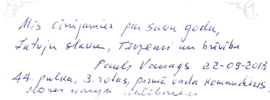 Mēs cīnījāmies par savu godu,
Latvju slavu, Tēvzemi un brīvību
Pauls Vanags 22-09-2013
44. pulka, 3. rotas, pirmā vada komandieris